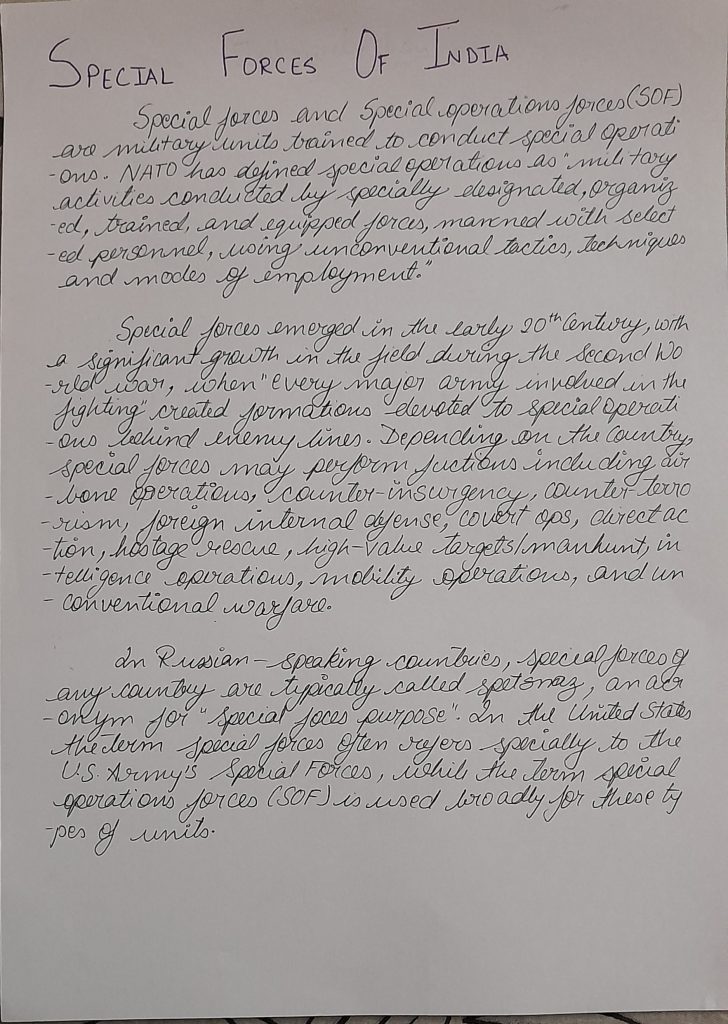 SPECIAL FORCES OF INDIA
Special forces and Special operations forces (SOF)
are military units trained to conduct special operati
-ons. NATO has defined special operations as "military
activities conducted by specially designated, organiz
-ed, trained, and equipped forces, manned with select
-ed personnel, using unconventional tactics, techniques
and modes of employment."
Special forces emerged in the early 20th Century, with
a significant growth in the field during the Second Wo
-rld war, when "every major army involved in the
fighting" created formations devoted to special operati
-ons behind enemy lines. Depending on the country,
special forces may perform fuctions including air
-bone operations, counter-insurgency, counter-terro
-rism, foreign internal defense, covert ops, direct ac
-tion, hostage rescue, high-value targets/manhunt, in
-telligence operations, mobility operations, and un
-conventional warfare.
In Russian-speaking countries, special forces of
any country are typically called spetsnaz, an acr
-onym for "special foces purpose". In the United States
the term special forces often refers specially to the
U.S. Army's Special Forces, while the term special
operations forces (SOF) is used broadly for these ty
-pes of units.